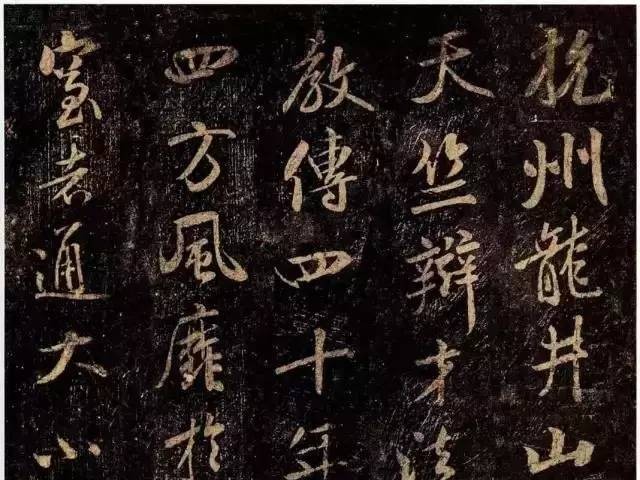 杭州龍井山
天竺辯才法
教傳四十年
四方風靡於
窒者通大小